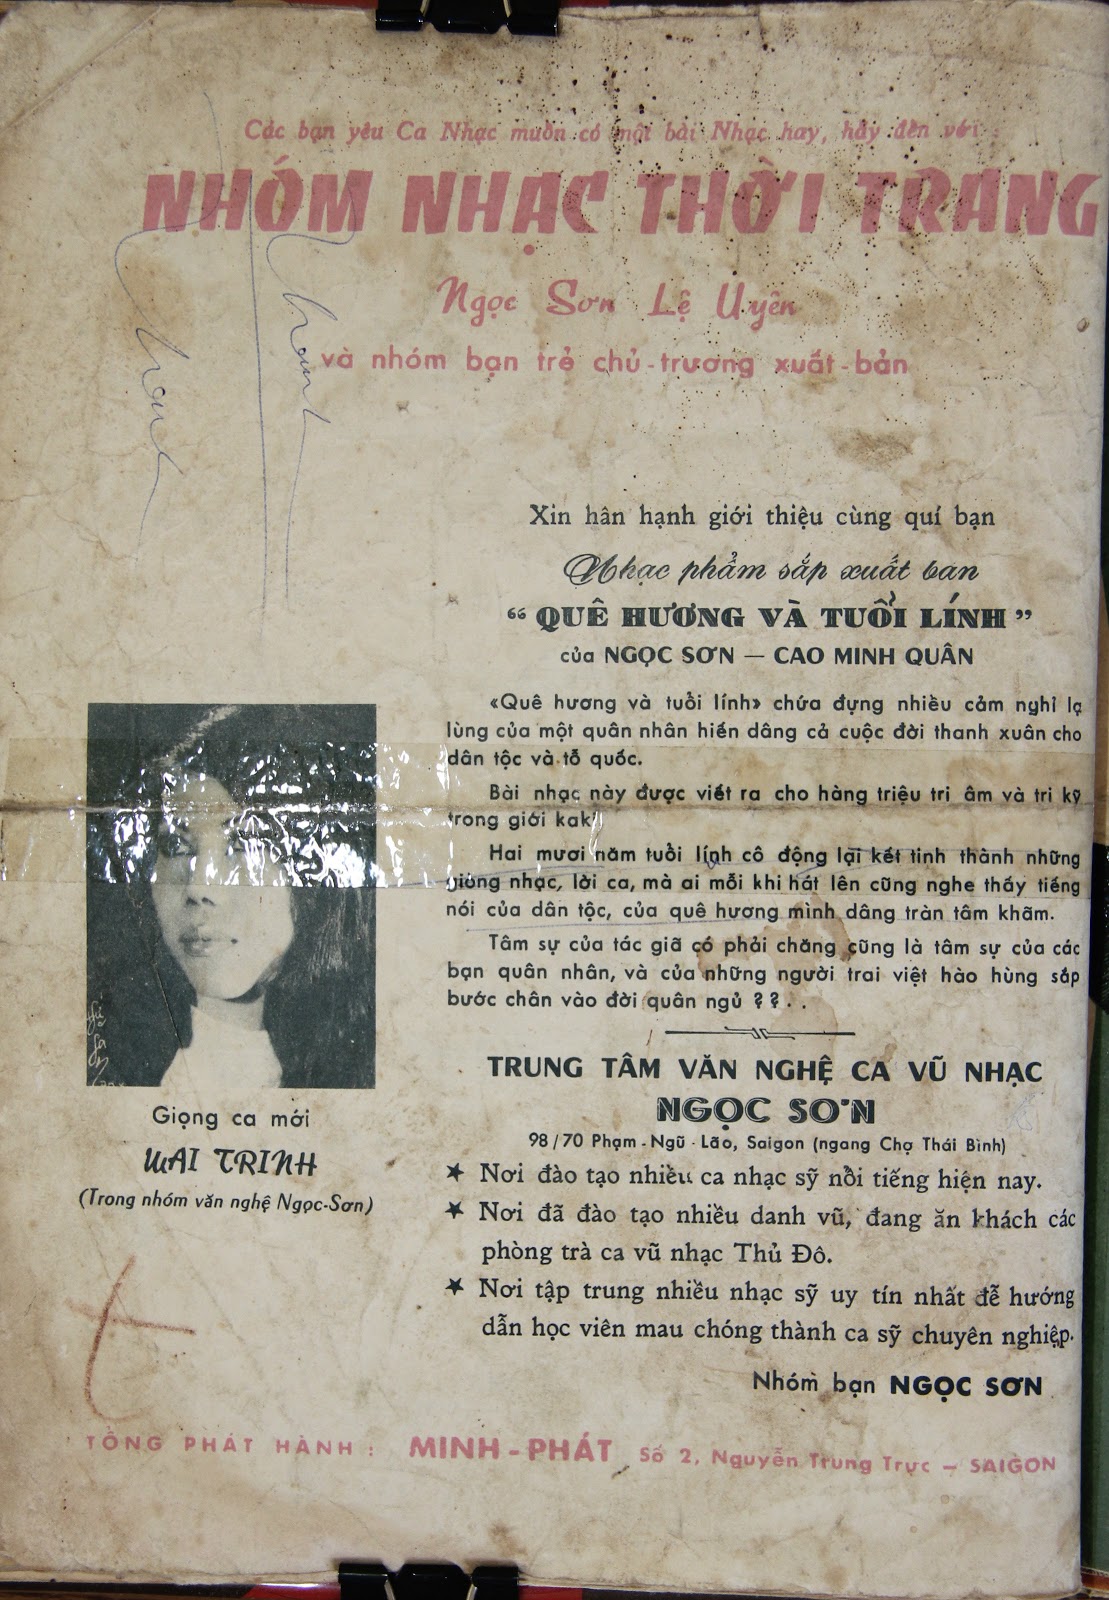 Các bạn yêu Ca Nhạc muốn có một bài Nhạc hay, hãy đến với :
NHÓM NHẠC THỜI TRANG
Ngọc Sơn Lệ Uyên
và nhóm bạn trẻ chủ-trương xuất-bản
Xin hân hạnh giới thiệu cùng quí bạn
Nhạc phẩm sắp xuất bản
“ QUÊ HƯƠNG VÀ TUỔI LÍNH ”
của NGỌC SƠN — CAO MINH QUÂN
«Quê hương và tuổi lính» chứa đựng nhiều cảm nghỉ lạ
lùng của một quân nhân hiến dâng cả cuộc đời thanh xuân cho
dân tộc và tổ quốc.
Bài nhạc này được viết ra cho hàng triệu tri âm và tri kỹ
trong giới kaki
Hai mươi năm tuổi lính cô động lại kết tinh thành những
giòng nhạc, lời ca, mà ai mỗi khi hát lên cũng nghe thấy tiếng
nói của dân tộc, của quê hương mình dâng tràn tâm khãm.
Tâm sự của tác giã có phải chăng cũng là tâm sự của các
bạn quân nhân, và của những người trai việt hào hùng sắp
bước chân vào đời quân ngủ ??..
TRUNG TÂM VĂN NGHỆ CA VŨ NHẠC
NGỌC SƠN
98/70 Phạm-Ngũ-Lão, Saigon (ngang Chợ Thái Bình)
★ Nơi đào tạo nhiều ca nhạc sỹ nổi tiếng hiện nay.
★ Nơi đã đào tạo nhiều danh vũ, đang ăn khách các
phòng trà ca vũ nhạc Thủ Đô.
★ Nơi tập trung nhiều nhạc sỹ uy tín nhất để hướng
dẫn học viên mau chóng thành ca sỹ chuyên nghiệp.
Nhóm bạn NGỌC SƠN
Giọng ca mới
MAI TRINH
(Trong nhóm văn nghệ Ngọc-Sơn)
TỔNG PHÁT HÀNH : MINH-PHÁT Số 2, Nguyễn Trung Trực — SAIGON